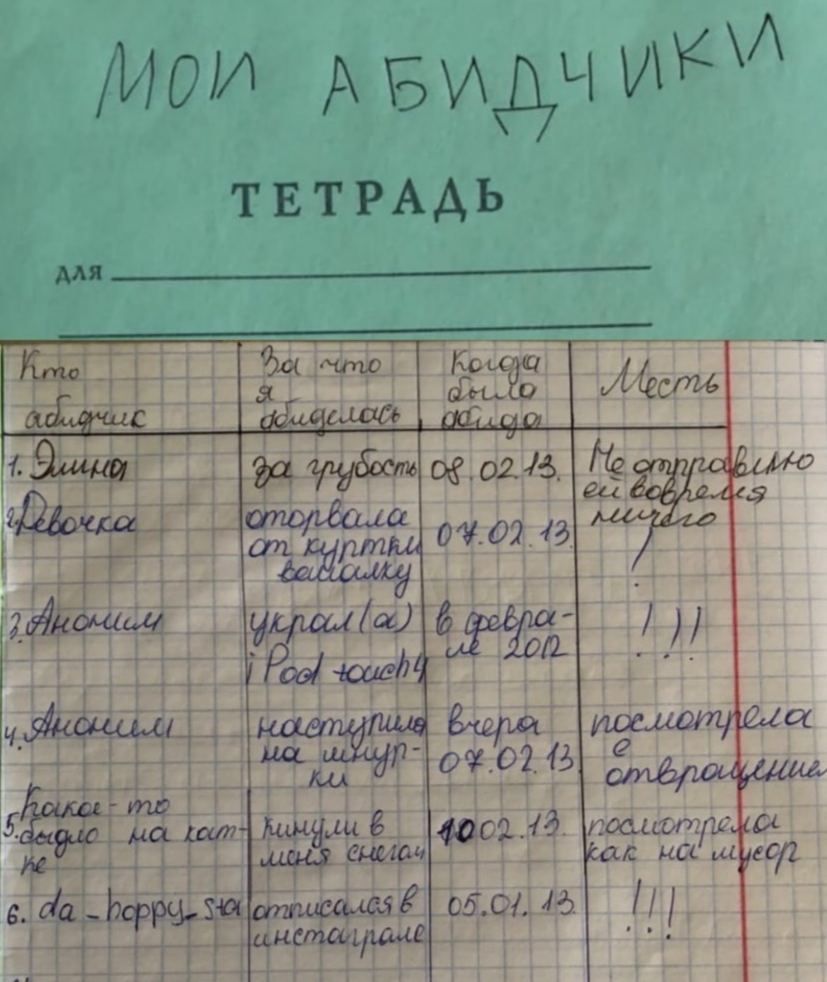 МОИ АБИДЧИКИ
ТЕТРАДЬ
для
Кто абидчик | За что я обиделась | Когда была абида | Месть
1. Элина | за грубость | 08.02.13. | Не отправлю ей вовремя ничего
2. Девочка | оторвала от куртки вешалку | 07.02.13. | !
3. Аноним | украл(а) iPod touch 4 | в феврале 2012 | !!!
4. Аноним | наступила на шнурки | вчера 07.02.13. | посмотрела с отвращением
5. Какое-то быдло на катке | кинули в меня снегом | 10 02.13. | посмотрела как на мусор
6. da_happy_sta | отписался в инстаграме | 05.01.13. | !!!